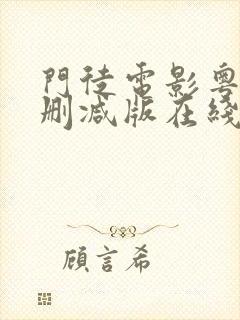 門徒電影粵
刪減版在綫
顧言希